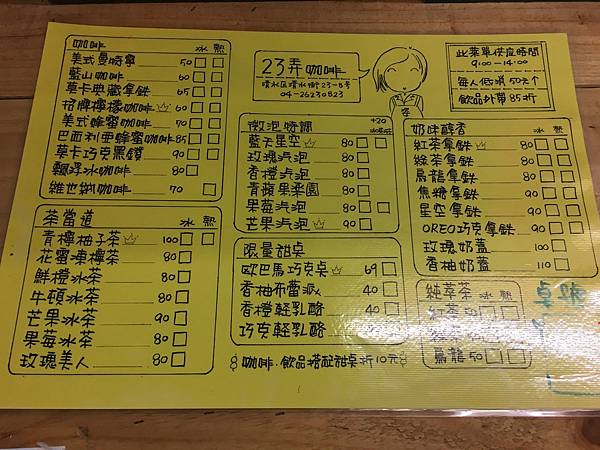 咖啡 冰 熱
美式曼特寧 50
藍山咖啡 60
莫卡典藏拿鉄 65
招牌檸檬咖啡 60
美式蜂蜜咖啡 80
巴西利亞蜂蜜咖啡 85
莫卡巧克黑鑽 90
飄浮冰咖啡 90
維也納咖啡 70
茶當道 冰 熱
青檸柚子茶 100
花蜜凍檸茶 80
鮮橙冰茶 80
牛頓冰茶 80
芒果冰茶 80
果莓冰茶 80
玫瑰美人 80
23弄咖啡
淡水区清水街23-5号
04-26230523
微泡特調 +20
藍天星空 80
玫瑰汽泡 80
香橙汽泡 80
青蘋果楽園 80
果莓汽泡 80
芒果汽泡 90
限量甜桌
歐巴馬巧克桌 69
香柚布蕾派 40
香橙輕乳酪 40
巧克輕乳酪
咖啡.飲品搭配甜桌折10元
此菜單供应時間
9:00-14:00
每人低消50元个
飲品外帶85折
奶味醇香 冰 熱
紅茶拿鉄 80
綠茶拿鉄 80
烏龍拿鉄 80
焦糖拿鉄 90
星空拿鉄 90
OREO巧克拿鉄 90
玫瑰奶蓋 100
香柚奶蓋 110
純萃茶 冰 熱
紅茶 50
烏龍 50
桌號